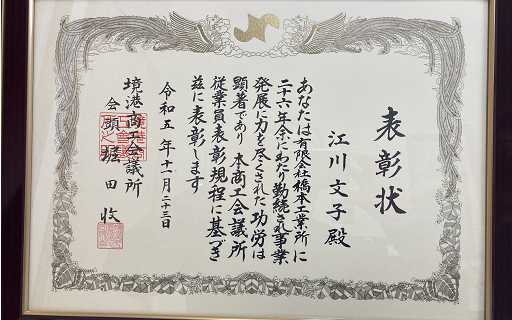 表彰状
江川文子殿
あなたは有限会社橋本工業所に
二十六年余にわたり勤続され事業
発展に力を尽くされた功労は
顕著であり本商工会議所
従業員表彰規程に基づき
茲に表彰します
令和五年十一月二十三日
境港商工会議所
会頭 堀田收